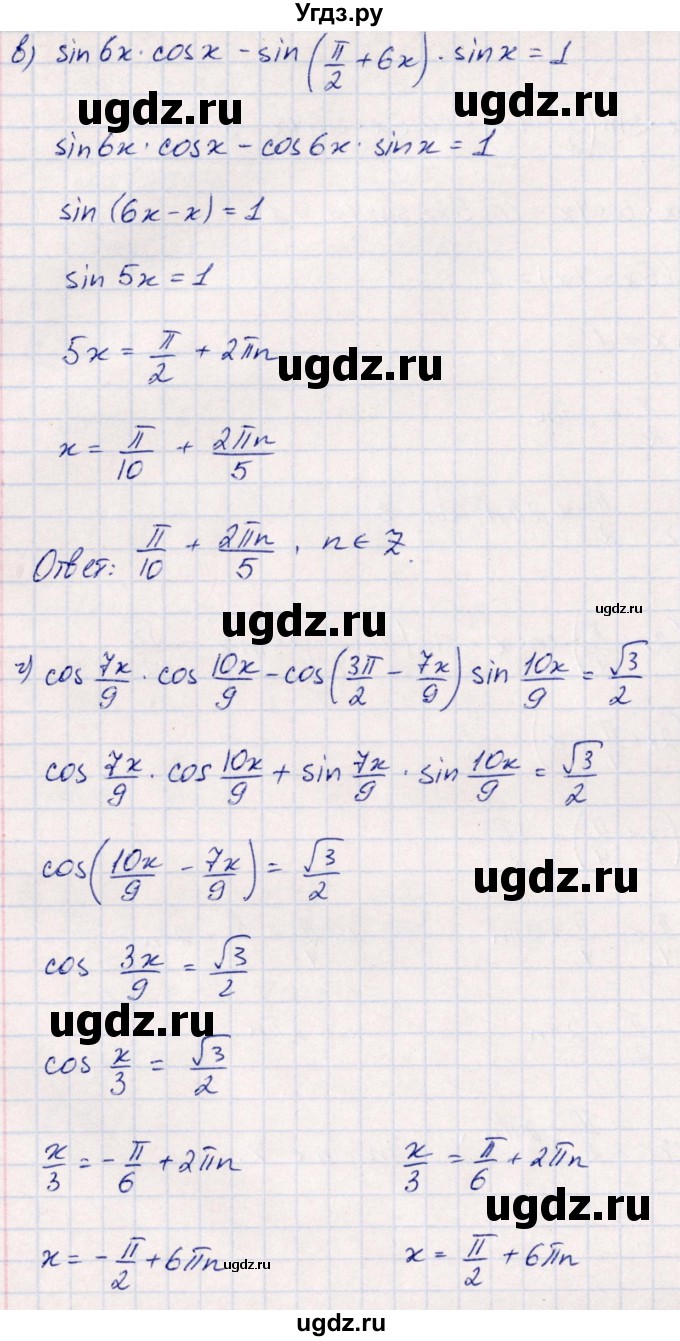 Угдз.ру
в) sin 6x · cos x - sin(π/2 + 6x) · sin x = 1
ugdz.ru ugdz.ru
sin 6x · cos x - cos 6x · sin x = 1
sin (6x - x) = 1
sin 5x = 1
5x = π/2 + 2πn
ugdz.ru
x = π/10 + 2πn/5
Ответ: π/10 + 2πn/5, n ∈ Z.
ugdz.ru ugdz.ru
г) cos 7x/9 · cos 10x/9 - cos(3π/2 - 7x/9) sin 10x/9 = √3/2
cos 7x/9 · cos 10x/9 + sin 7x/9 · sin 10x/9 = √3/2
cos(10x/9 - 7x/9) = √3/2
ugdz.ru
cos 3x/9 = √3/2
ugdz.ru
cos x/3 = √3/2
x/3 = -π/6 + 2πn x/3 = π/6 + 2πn
ugdz.ru
x = -π/2 + 6πn x = π/2 + 6πn
ugdz.ru
ugdz.ru